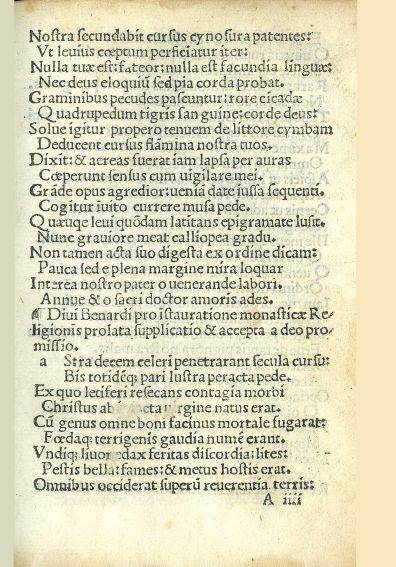 Nostra secundabit cursus cynosura patentes:
Vt leuius cœptum perficiatur iter:
Nulla tua est: fateor: nulla est facundia linguæ:
Nec deus eloquiū sed pia corda probat.
Graminibus pecudes pascuntur: rore cicadæ
Quadrupedum tigris sanguine: corde deus:
Solue igitur propero tenuem de littore cymbam
Deducent cursus flamina nostra tuos.
Dixit: & aereas fuerat iam lapsa per auras
Cœperunt sensus cum uigilare mei.
Grāde opus agredior: ueniā date iussa sequenti.
Cogitur iuito currere musa pede.
Quæuqe leui quōdam latitans epigramate lusit.
Nunc grauiore meat calliopea gradu.
Non tamen acta suo digesta ex ordine dicam:
Pauca sed e plena margine mira loquar
Interea nostro pater o uenerande labori.
Annue & o sacri doctor amoris ades.
¶ Diui Benardi pro istauratione monasticæ Re
ligionis prolata supplicatio & accepta a deo pro
missio.
a Stra decem celeri penetrarant secula cursu:
Bis totidēq; pari lustra peracta pede.
Ex quo letiferi resecans contagia morbi
Christus ab uirgine natus erat.
Cū genus omne boni facinus mortale fugarat:
Fœdaq; terrigenis gaudia numē erant.
Vndiq; liuor edax feritas discordia: lites:
Pestis bella: fames: & metus hostis erat.
Omnibus occiderat superū reuerentia terris:
A iiii